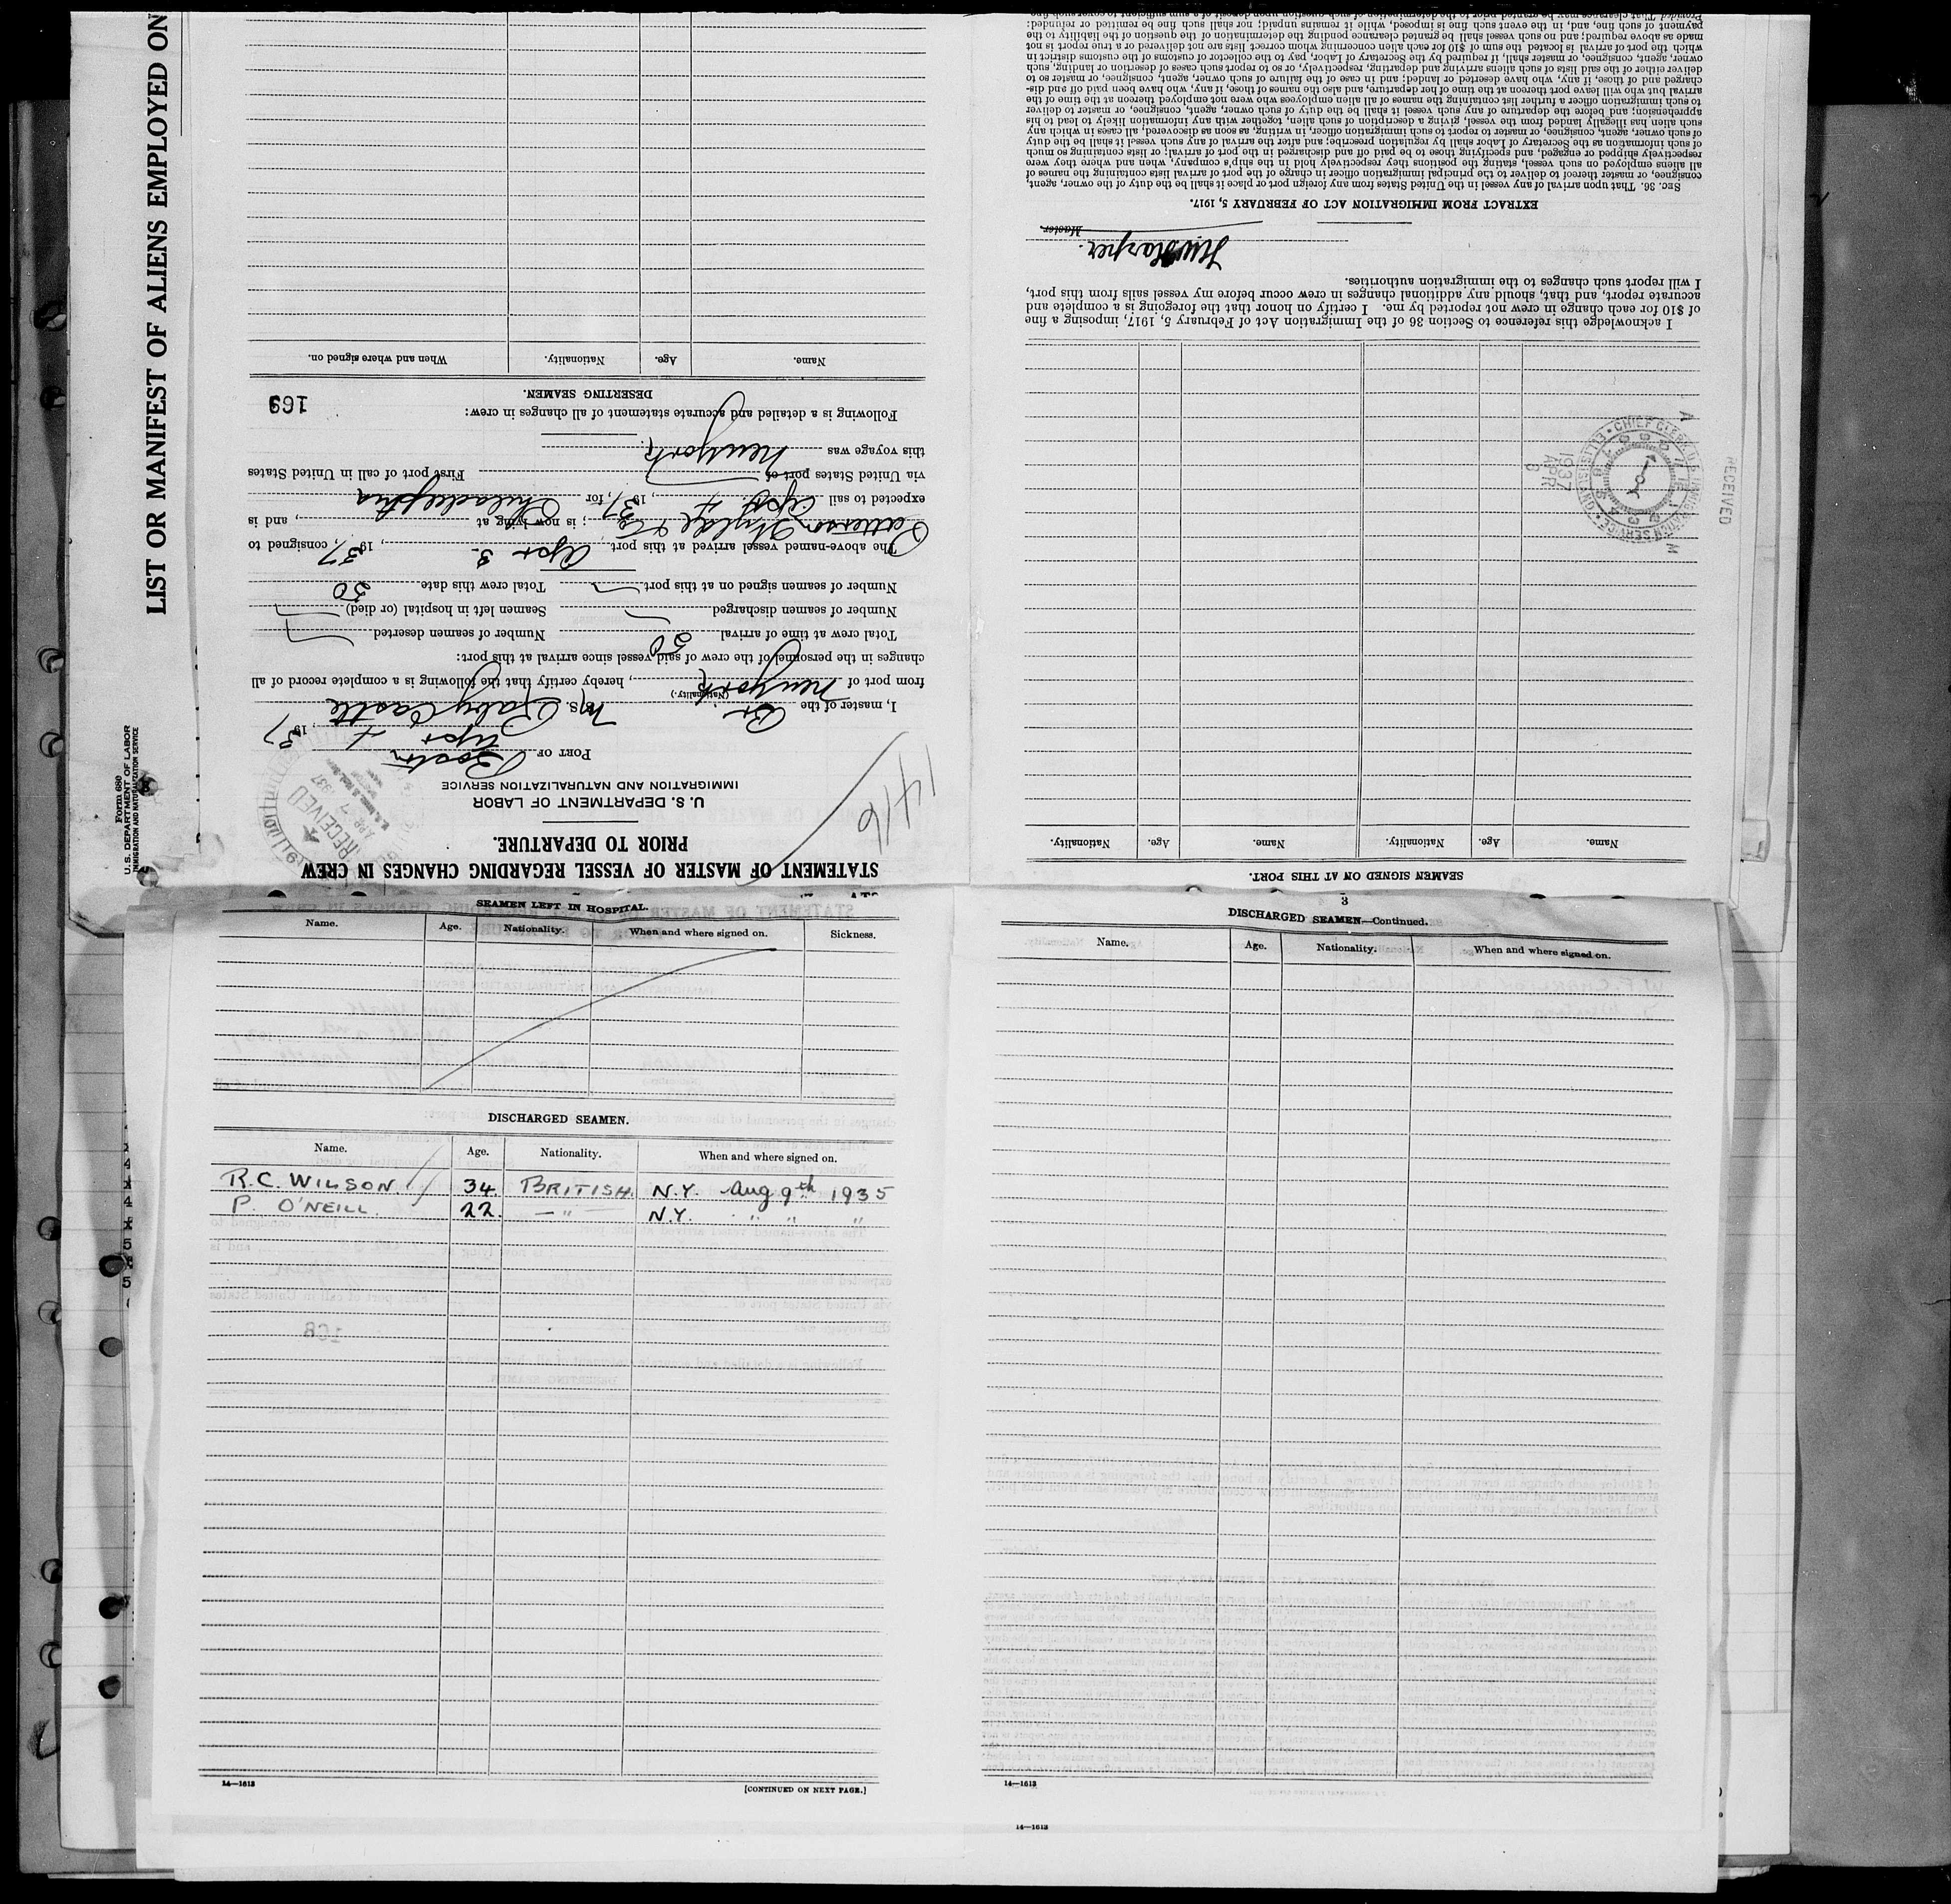 LIST OR MANIFEST OF ALIENS EMPLOYED ON
Form 680
U.S. DEPARTMENT OF LABOR
IMMIGRATION AND NATURALIZATION SERVICE
STATEMENT OF MASTER OF VESSEL REGARDING CHANGES IN CREW
PRIOR TO DEPARTURE.
1416
U. S. DEPARTMENT OF LABOR
IMMIGRATION AND NATURALIZATION SERVICE
RECEIVED
APR 7 1937
PORT OF Boston
Apr 4, 1937
I, master of the Br M.S. Raby Castle
(Nationality.)
from port of New York, hereby certify that the following is a complete record of all
changes in the personnel of the crew of said vessel since arrival at this port:
Total crew at time of arrival 50 Number of seamen deserted
Number of seamen discharged Seamen left in hospital (or died)
Number of seamen signed on at this port Total crew this date 50
The above-named vessel arrived at this port, Apr 3, 1937, consigned to
Patterson Wylde & Co; is now lying at, and is
expected to sail Apr 4, 1937, for Philadelphia
via United States port of First port of call in United States
this voyage was New York
Following is a detailed and accurate statement of all changes in crew:
169
DESERTING SEAMEN.
Name. Age. Nationality. When and where signed on.
SEAMEN SIGNED ON AT THIS PORT.
Name. Age. Nationality. Name. Age. Nationality.
RECEIVED
CHIEF CLERK
IMMIGRATION SERVICE
1937
APR
I acknowledge this reference to Section 36 of the Immigration Act of February 5, 1917, imposing a fine
of $10 for each change in crew not reported by me. I certify on honor that the foregoing is a complete and
accurate report, and that, should any additional changes in crew occur before my vessel sails from this port,
I will report such changes to the immigration authorities.
H W Harper.
Master
EXTRACT FROM IMMIGRATION ACT OF FEBRUARY 5, 1917.
SEC. 36. That upon arrival of any vessel in the United States from any foreign port or place it shall be the duty of the owner, agent,
consignee, or master thereof to deliver to the principal immigration officer in charge of the port of arrival lists containing the names of
all aliens employed on such vessel, stating the positions they respectively hold in the ship's company, when and where they were
respectively shipped or engaged, and specifying those to be paid off and discharged in the port of arrival; or lists containing so much
of such information as the Secretary of Labor shall by regulation prescribe; and after the arrival of any such vessel it shall be the duty
of such owner, agent, consignee, or master to report to such immigration officer, in writing, as soon as discovered, all cases in which any
such alien has illegally landed from the vessel, giving a description of such alien, together with any information likely to lead to his
apprehension; and before the departure of any such vessel it shall be the duty of such owner, agent, consignee, or master to deliver
to such immigration officer a further list containing the names of all alien employees who were not employed thereon at the time of the
arrival but who will leave port thereon at the time of her departure, and also the names of those, if any, who have been paid off and dis-
charged and of those, if any, who have deserted or landed; and in case of the failure of such owner, agent, consignee, or master so to
deliver either of the said lists of such aliens arriving and departing, respectively, or so to report such cases of desertion or landing, such
owner, agent, consignee, or master shall, if required by the Secretary of Labor, pay to the collector of customs of the customs district in
which the port of arrival is located the sum of $10 for each alien concerning whom correct lists are not delivered or a true report is not
made as above required; and no such vessel shall be granted clearance pending the determination of the question of the liability to the
payment of such fine, and, in the event such fine is imposed, while it remains unpaid; nor shall such fine be remitted or refunded:
Provided, That clearance may be granted prior to the determination of such question upon deposit of a sum sufficient to cover such fine
SEAMEN LEFT IN HOSPITAL.
Name. Age. Nationality. When and where signed on. Sickness.
DISCHARGED SEAMEN.
Name. Age. Nationality. When and where signed on.
R.C. WILSON. 34. BRITISH. N.Y. Aug 9th 1935
P. O'NEILL. 22. —"— N.Y. " " "
14—1613 [CONTINUED ON NEXT PAGE.]
3
DISCHARGED SEAMEN—Continued.
Name. Age. Nationality. When and where signed on.
14—1613
14—1613